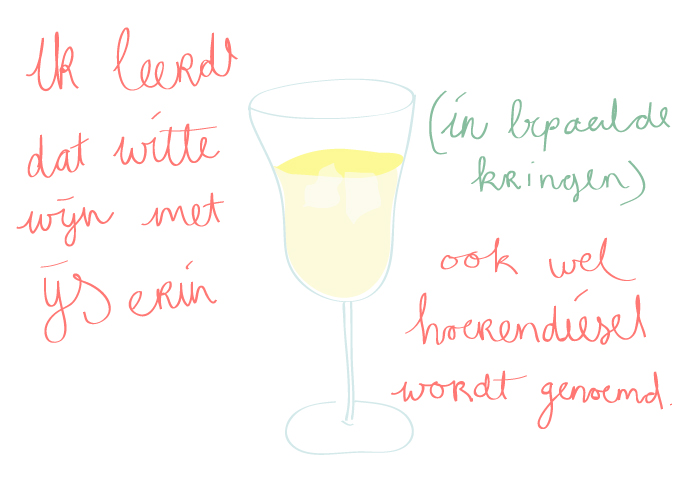 Ik leerde
dat witte
wijn met
ijs erin
(in bepaalde
kringen)
ook wel
hoerendiesel
wordt genoemd.